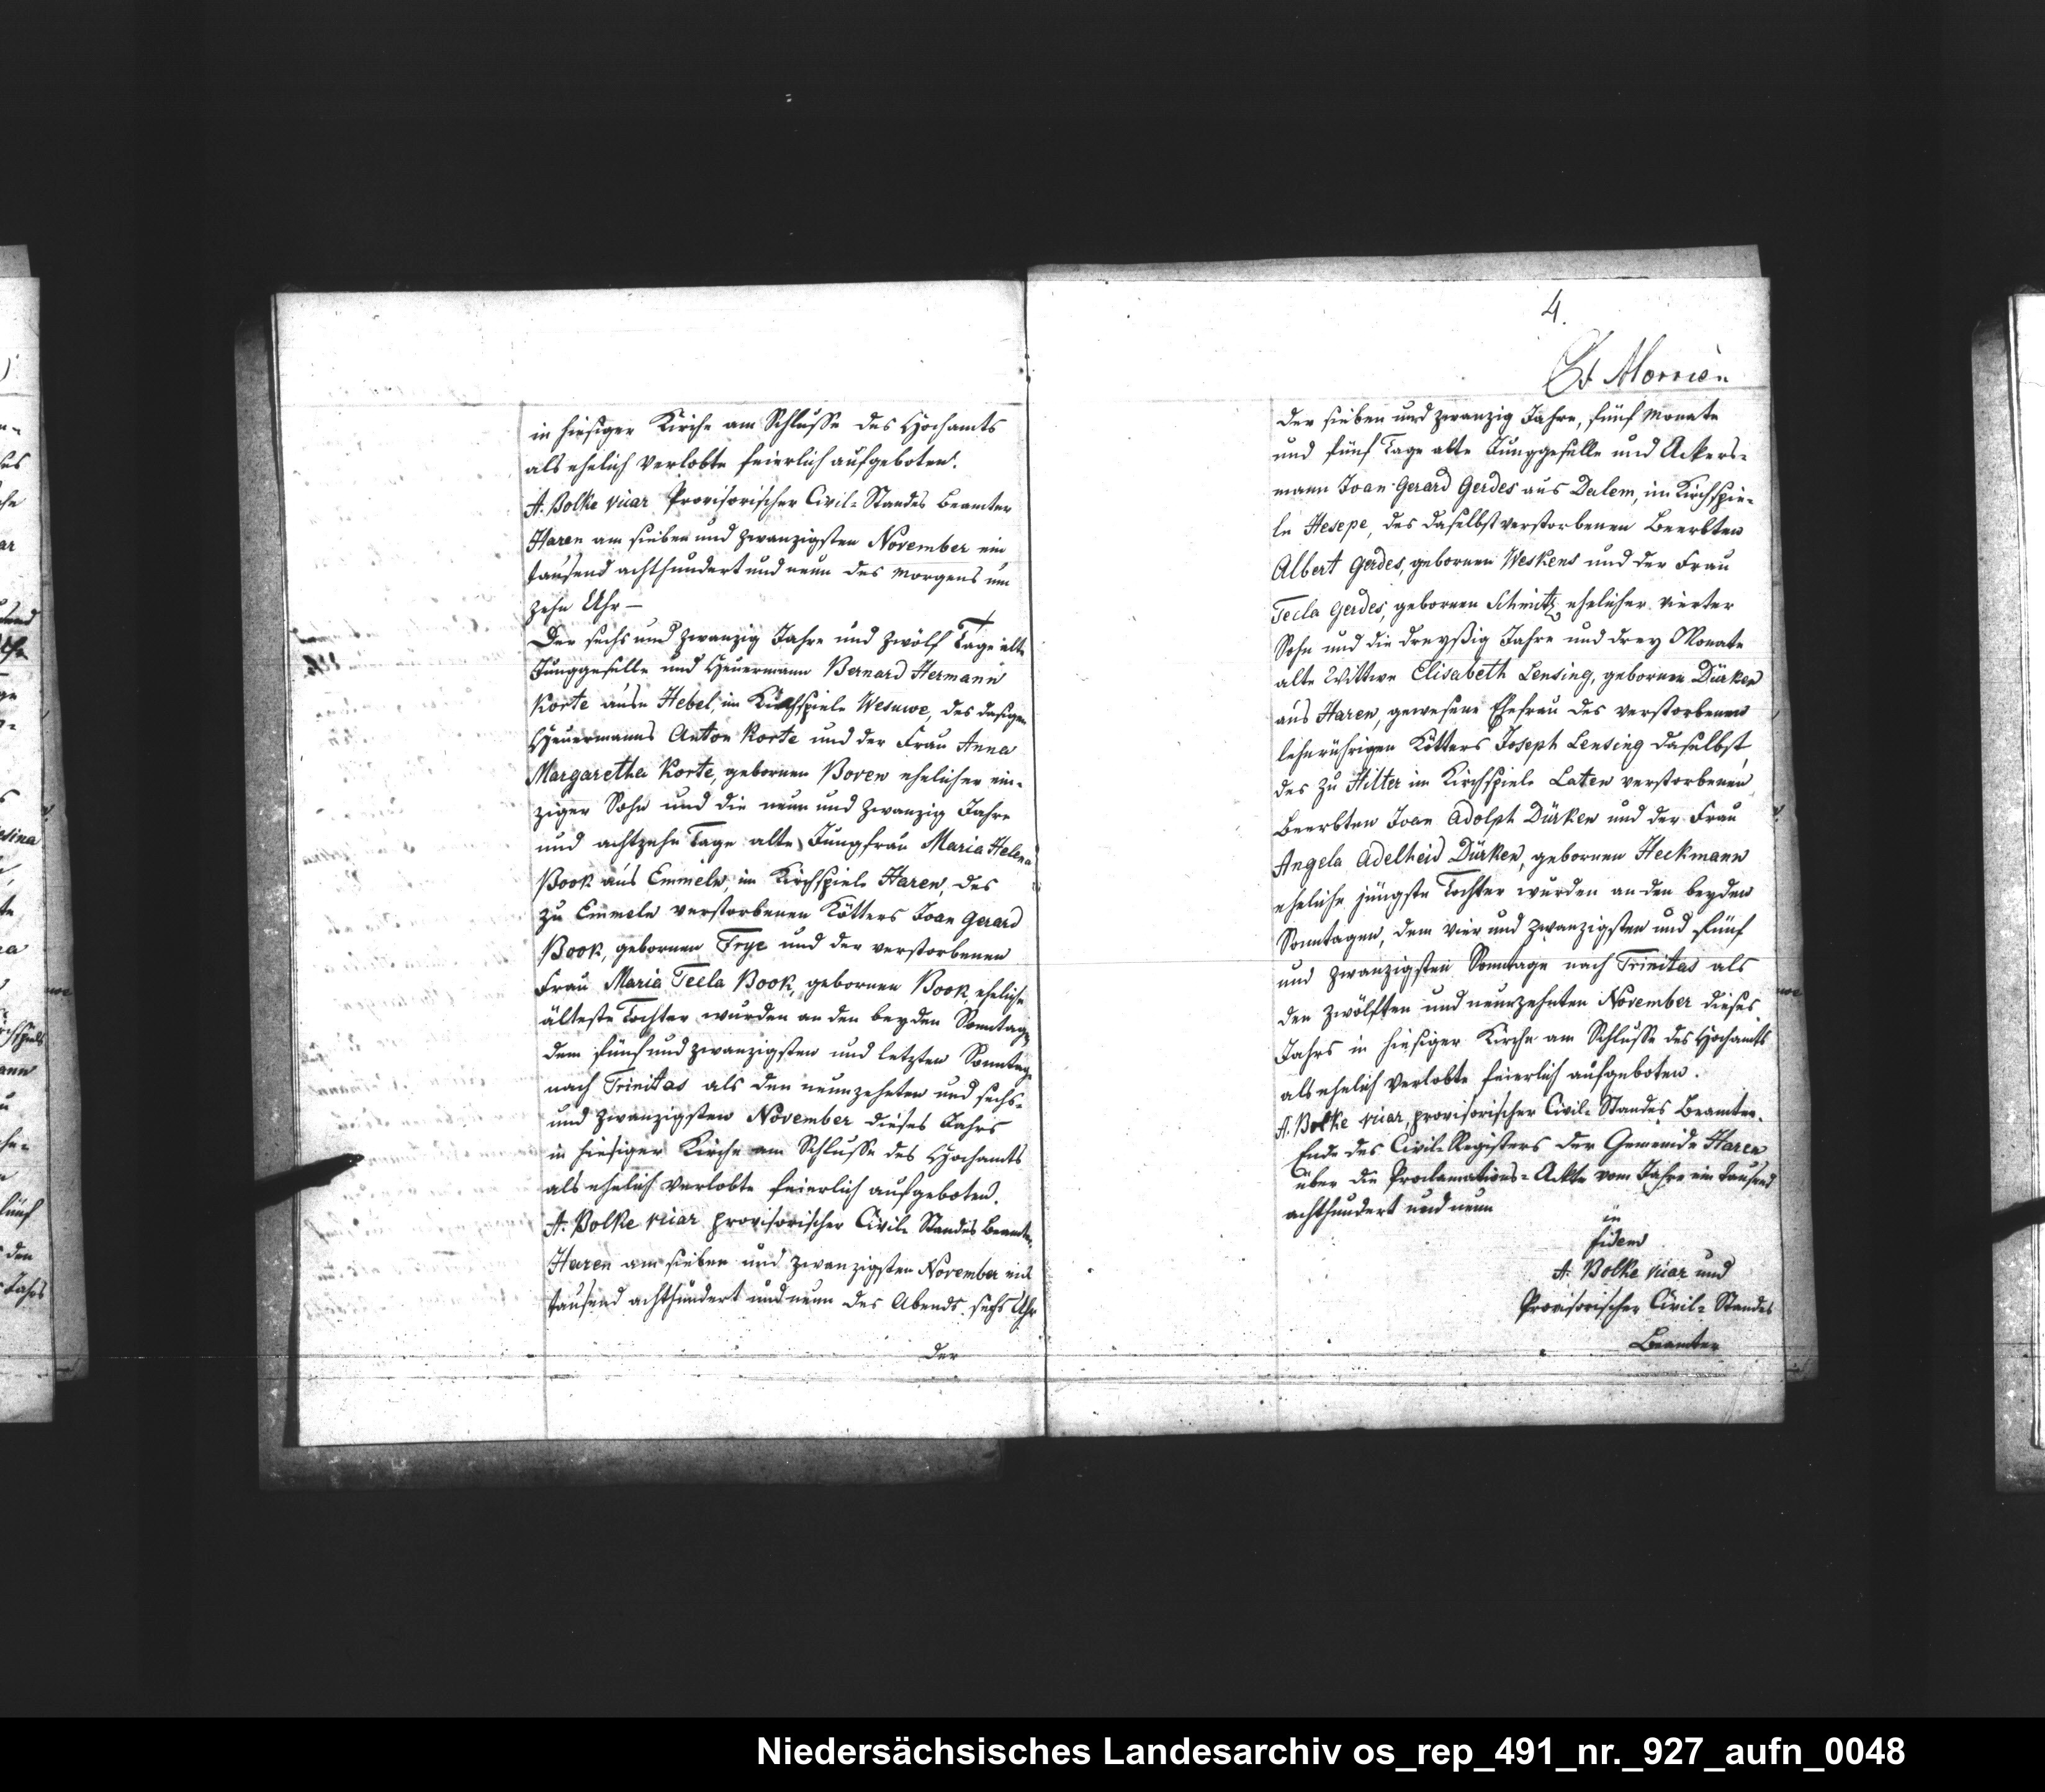 in hiesiger Kirche am Schlusse des Hochamts
als ehelich Verlobte feierlich aufgeboten.
A. Bolke vicar Provisorischer Civil-Standes Beamter
Haren am sieben und zwanzigsten November ein
tausend achthundert und neun des Morgens um
zehn Uhr —
Der sechs und zwanzig Jahre und zwölf Tage alte
Junggeselle und Heuermann Bernard Hermann
Korte aus Hebel, im Kirchspiele Wesuwe, des dasigen
Heuermanns Anton Korte und der Frau Anna
Margaretha Korte, gebornen Boven ehelicher ein-
ziger Sohn und die neun und zwanzig Jahre
und achtzehn Tage alte Jungfrau Maria Helena
Book aus Emmeln, im Kirchspiele Haren, des
zu Emmeln verstorbenen Kötters Joan Gerard
Book, gebornen Frye und der verstorbenen
Frau Maria Tecla Book, gebornen Book, eheliche
älteste Tochter wurden an den beyden Sonntagen
dem fünf und zwanzigsten und letzten Sonntage
nach Trinitas als den neunzehnten und sechs-
und zwanzigsten November dieses Jahrs
in hiesiger Kirche am Schlusse des Hochamts
als ehelich Verlobte feierlich aufgeboten.
A. Bolke vicar provisorischer Civil-Standes Beamter
Haren am sieben und zwanzigsten November ein
tausend achthundert und neun des Abends sechs Uhr
Der
4.
Morrien
Der sieben und zwanzig Jahre, fünf Monate
und fünf Tage alte Junggeselle und Ackers-
mann Joan Gerard Gerdes aus Dalem, im Kirchspie-
le Hesepe, des daselbst verstorbenen Beerbten
Albert Gerdes, gebornen Weskens und der Frau
Tecla Gerdes, gebornen Schmitz, ehelicher vierter
Sohn und die dreyßig Jahre und drey Monate
alte Wittwe Elisabeth Lensing, gebornen Dürken
aus Haren, gewesene Ehefrau des verstorbenen
lehnrührigen Kötters Joseph Lensing daselbst,
des zu Hilter im Kirchspiele Laten verstorbenen
Beerbten Joan Adolph Dürken und der Frau
Angela Adelheid Dürken, gebornen Heckmann
eheliche jüngste Tochter wurden an den beyden
Sonntagen, dem vier und zwanzigsten und fünf
und zwanzigsten Sonntage nach Trinitas als
den zwölften und neunzehnten November dieses
Jahrs in hiesiger Kirche am Schlusse des Hochamts
als ehelich Verlobte feierlich aufgeboten.
A. Bolke vicar, provisorischer Civil-Standes Beamter.
Ende des Civil-Registers der Gemeinde Haren
über die Proclamations-Ackte vom Jahre ein tausend
achthundert und neun
in
fidem
A. Bolke vicar und
Provisorischer Civil-Standes
Beamter
Niedersächsisches Landesarchiv os_rep_491_nr._927_aufn_0048